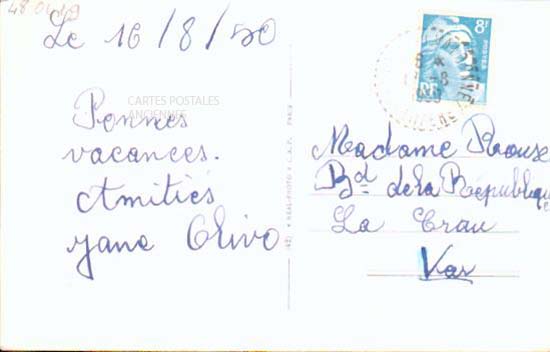 48 0419
Le 16/8/50
CARTES POSTALES
ANCIENNES
Bonnes
vacances.
Amitiés
Jane Olivo
REAL-PHOTO
C.A.P.
PARIS
8F
POSTES
RF
Madame Rouse
Bd de la République
La Crau
Var